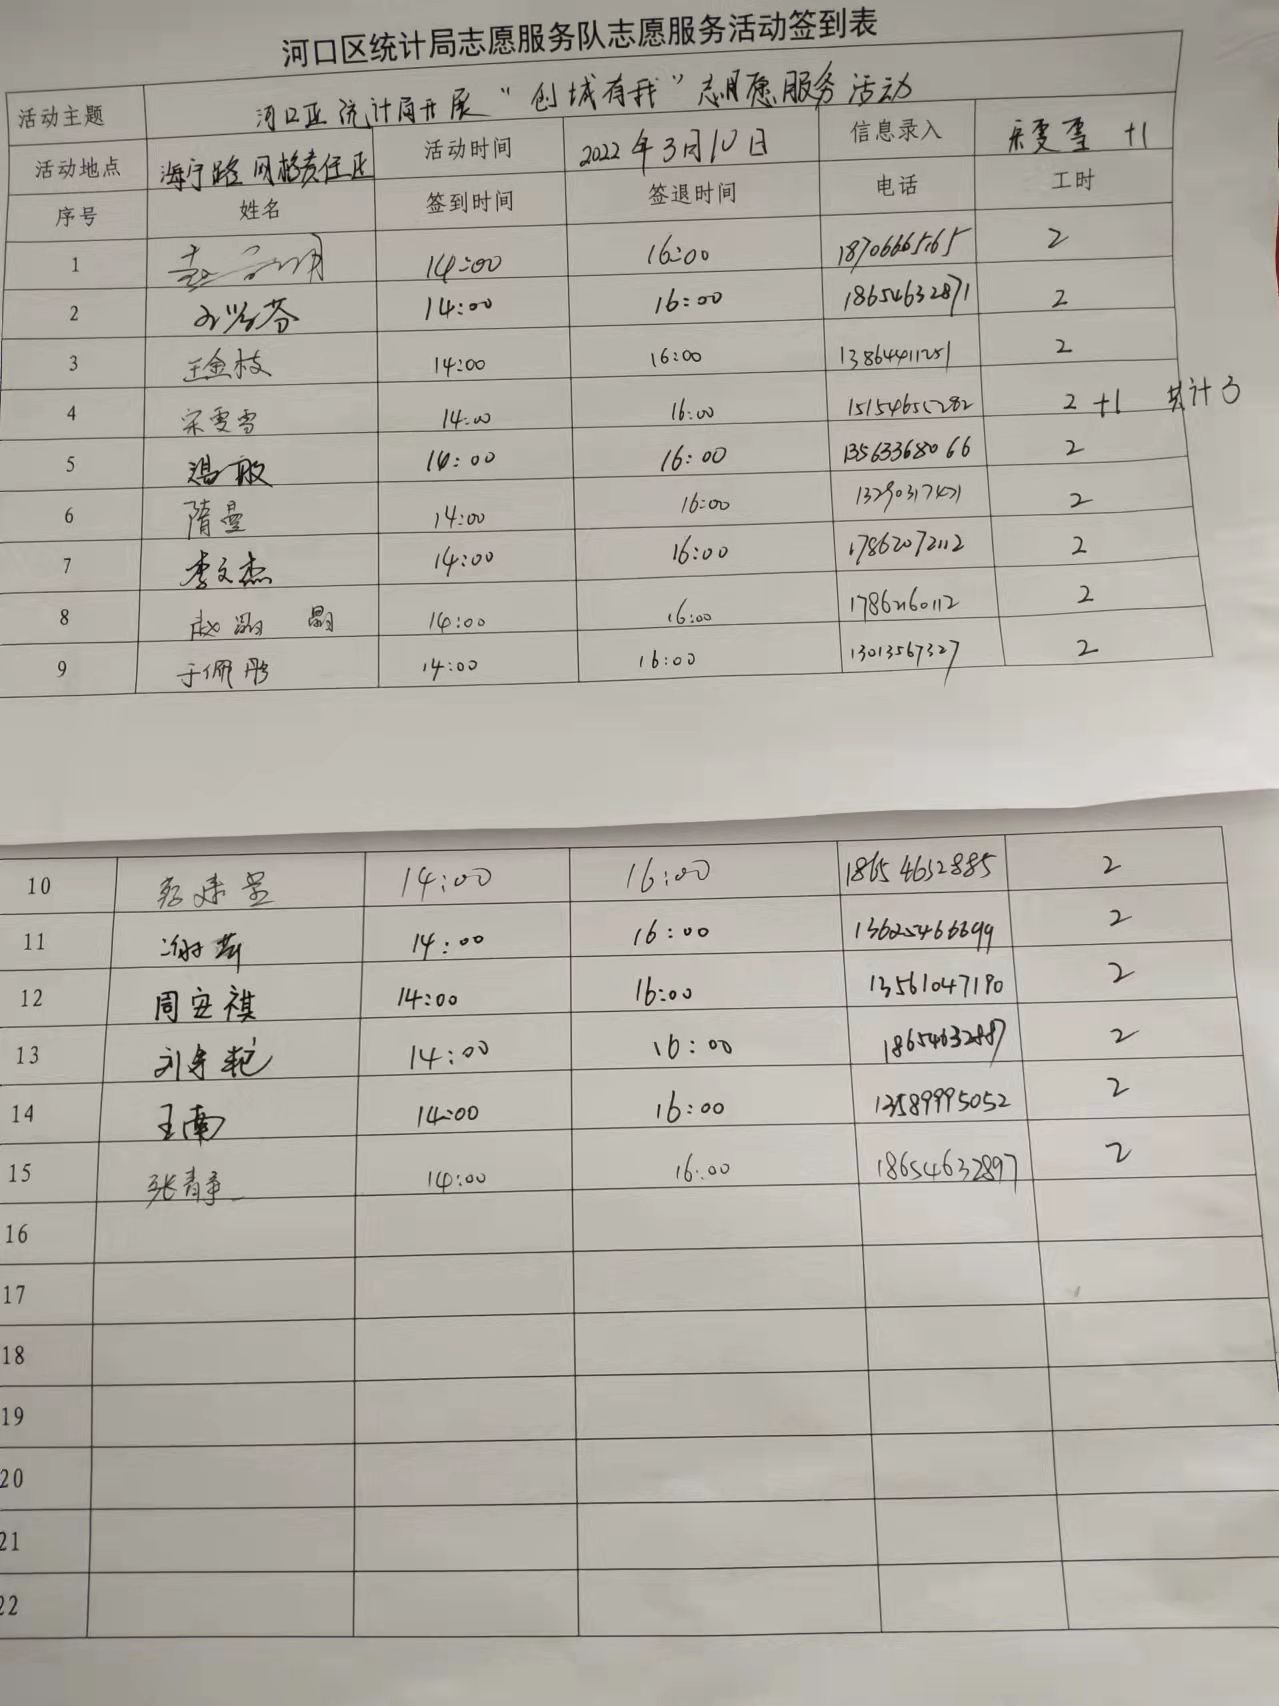 河口区统计局志愿服务队志愿服务活动签到表
活动主题 河口区统计局开展“创城有我”志愿服务活动
活动地点 海宁路网格责任区 活动时间 2022年3月10日 信息录入 宋雯雪 +1
序号 姓名 签到时间 签退时间 电话 工时
1 14:00 16:00 18706665165 2
2 14:00 16:00 18654632871 2
3 王金枝 14:00 16:00 13864411251 2
4 宋雯雪 14:00 16:00 15154655282 2 +1 共计3
5 冯敏 14:00 16:00 13563368066 2
6 隋曼 14:00 16:00 13290317421 2
7 李文杰 14:00 16:00 17862072112 2
8 赵 14:00 16:00 17862160112 2
9 于佩彤 14:00 16:00 13013567327 2
10 14:00 16:00 18654632885 2
11 谢 14:00 16:00 13625466699 2
12 周安祺 14:00 16:00 13561047190 2
13 刘 14:00 16:00 18654632887 2
14 王南 14:00 16:00 13589995052 2
15 张静 14:00 16:00 18654632897 2
16
17
18
19
20
21
22